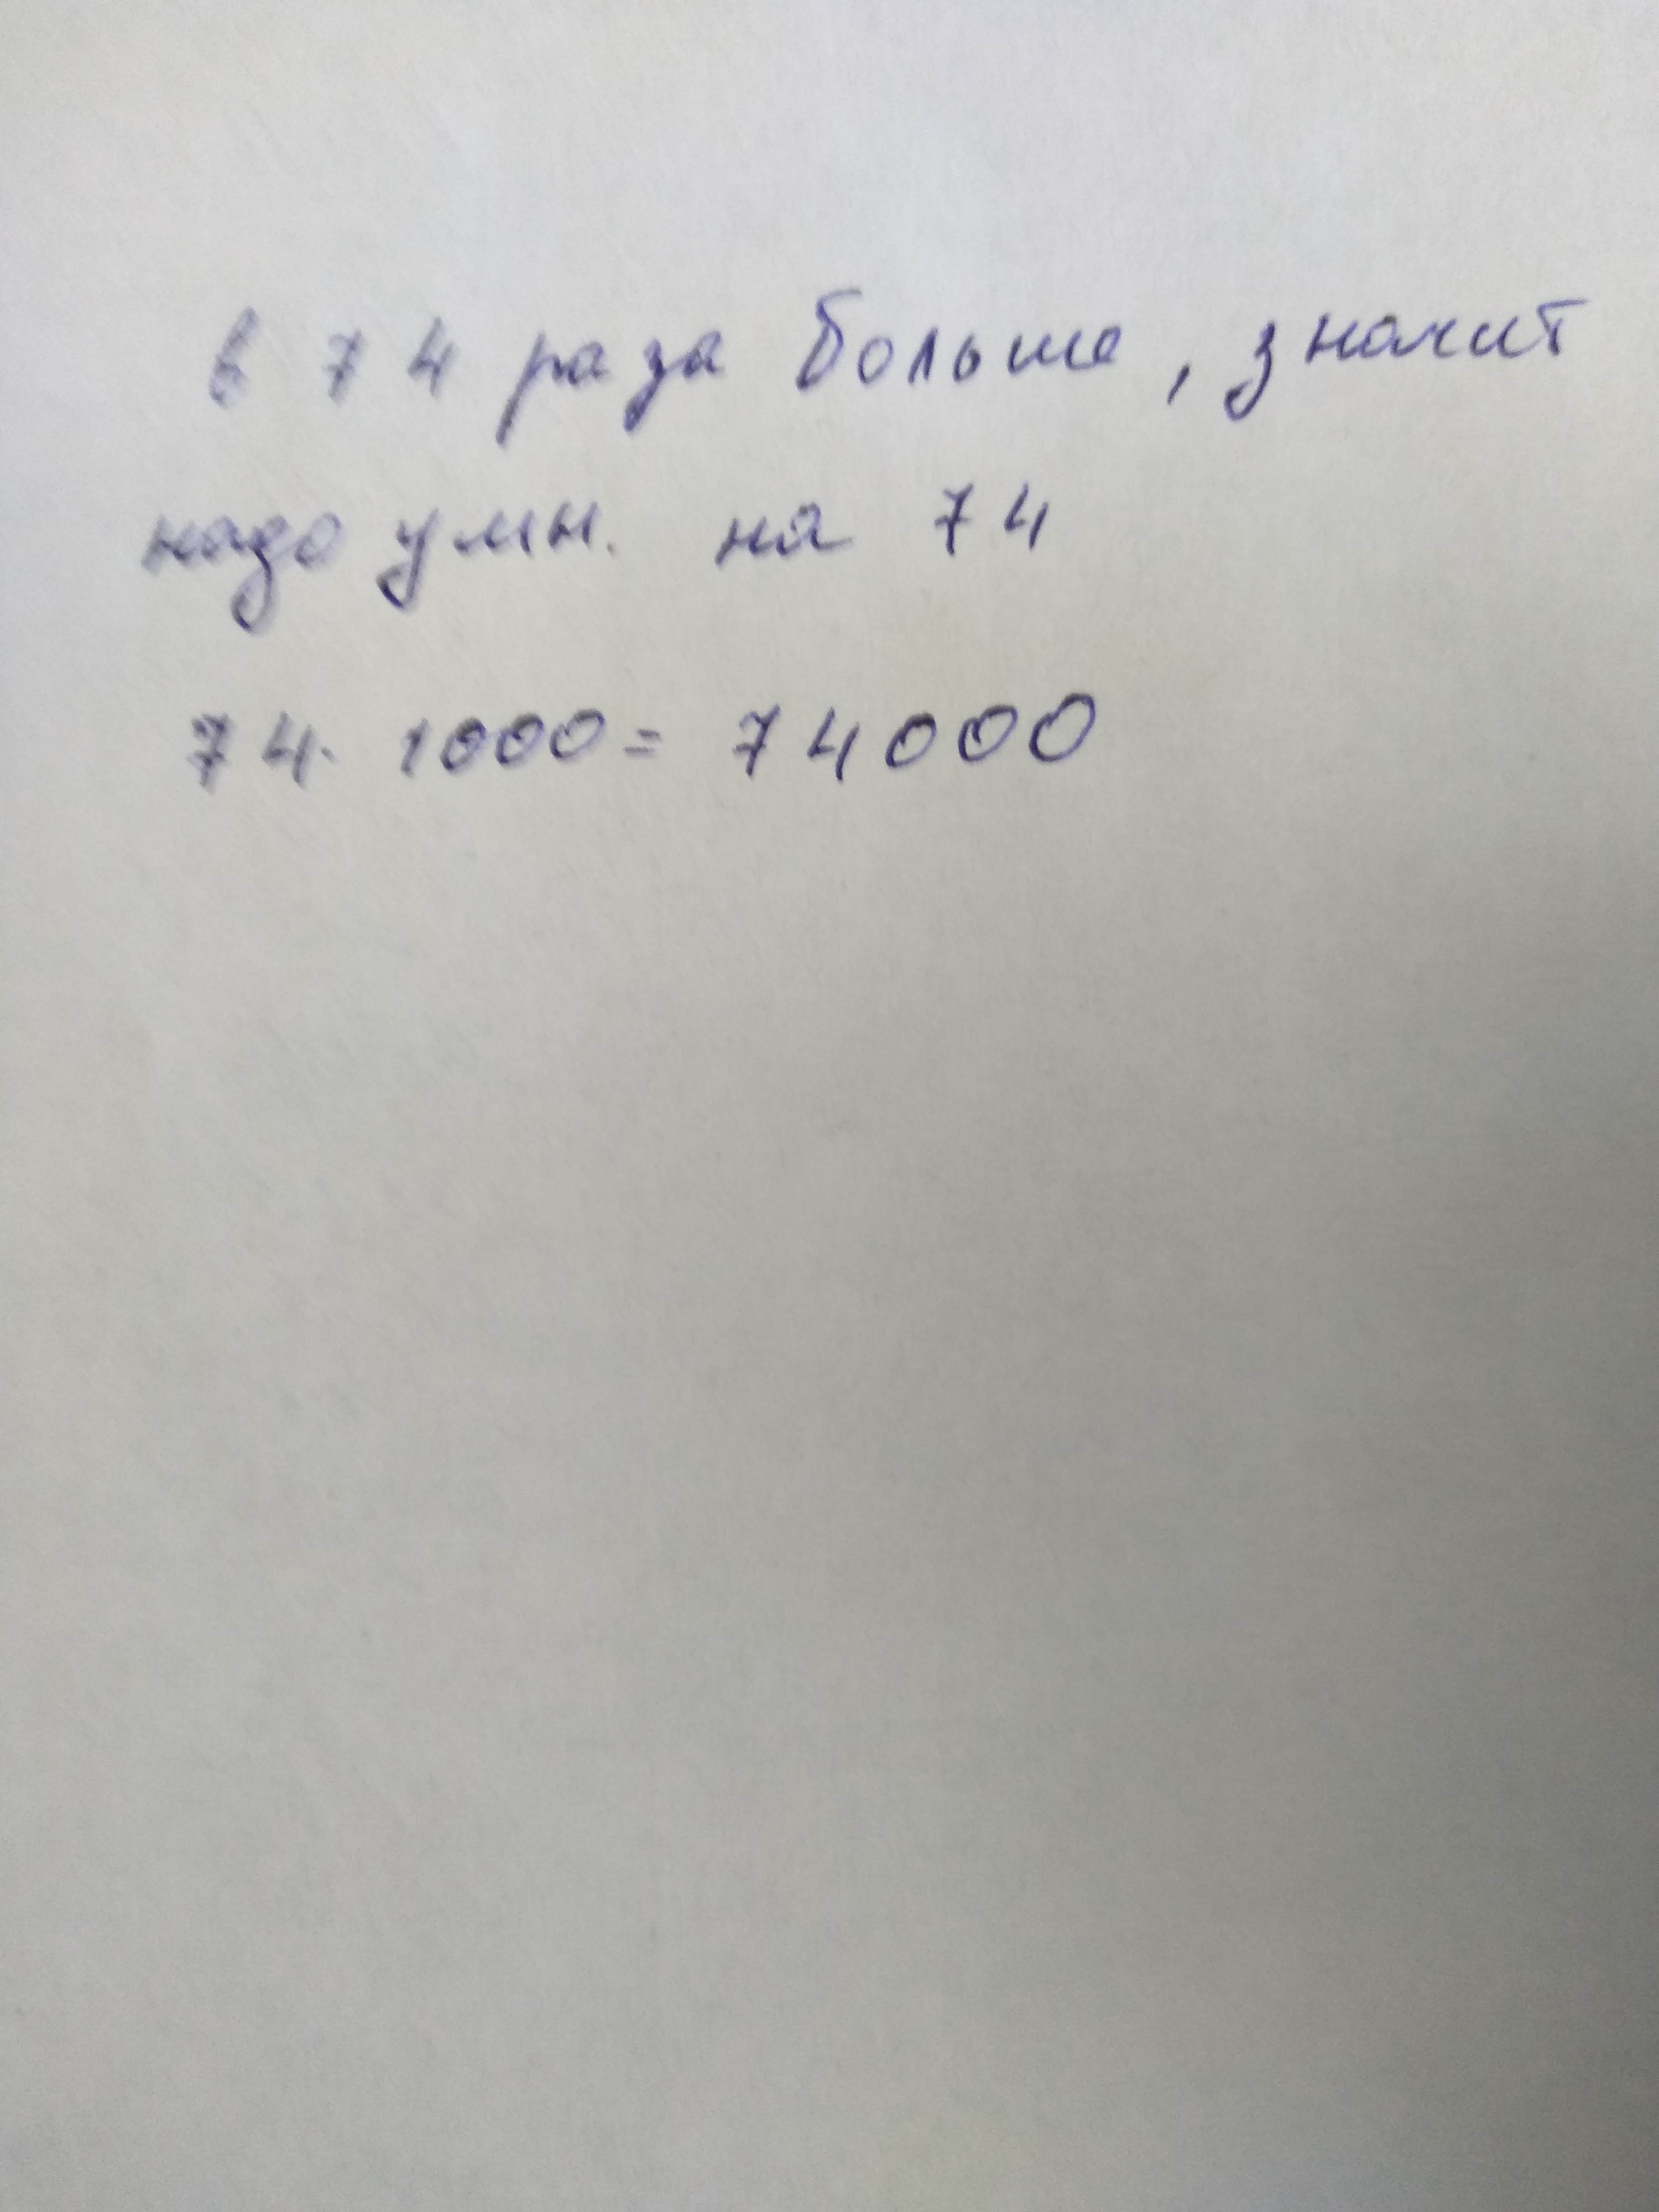 в 74 раза больше, значит
надо умн. на 74
74. 1000= 74000